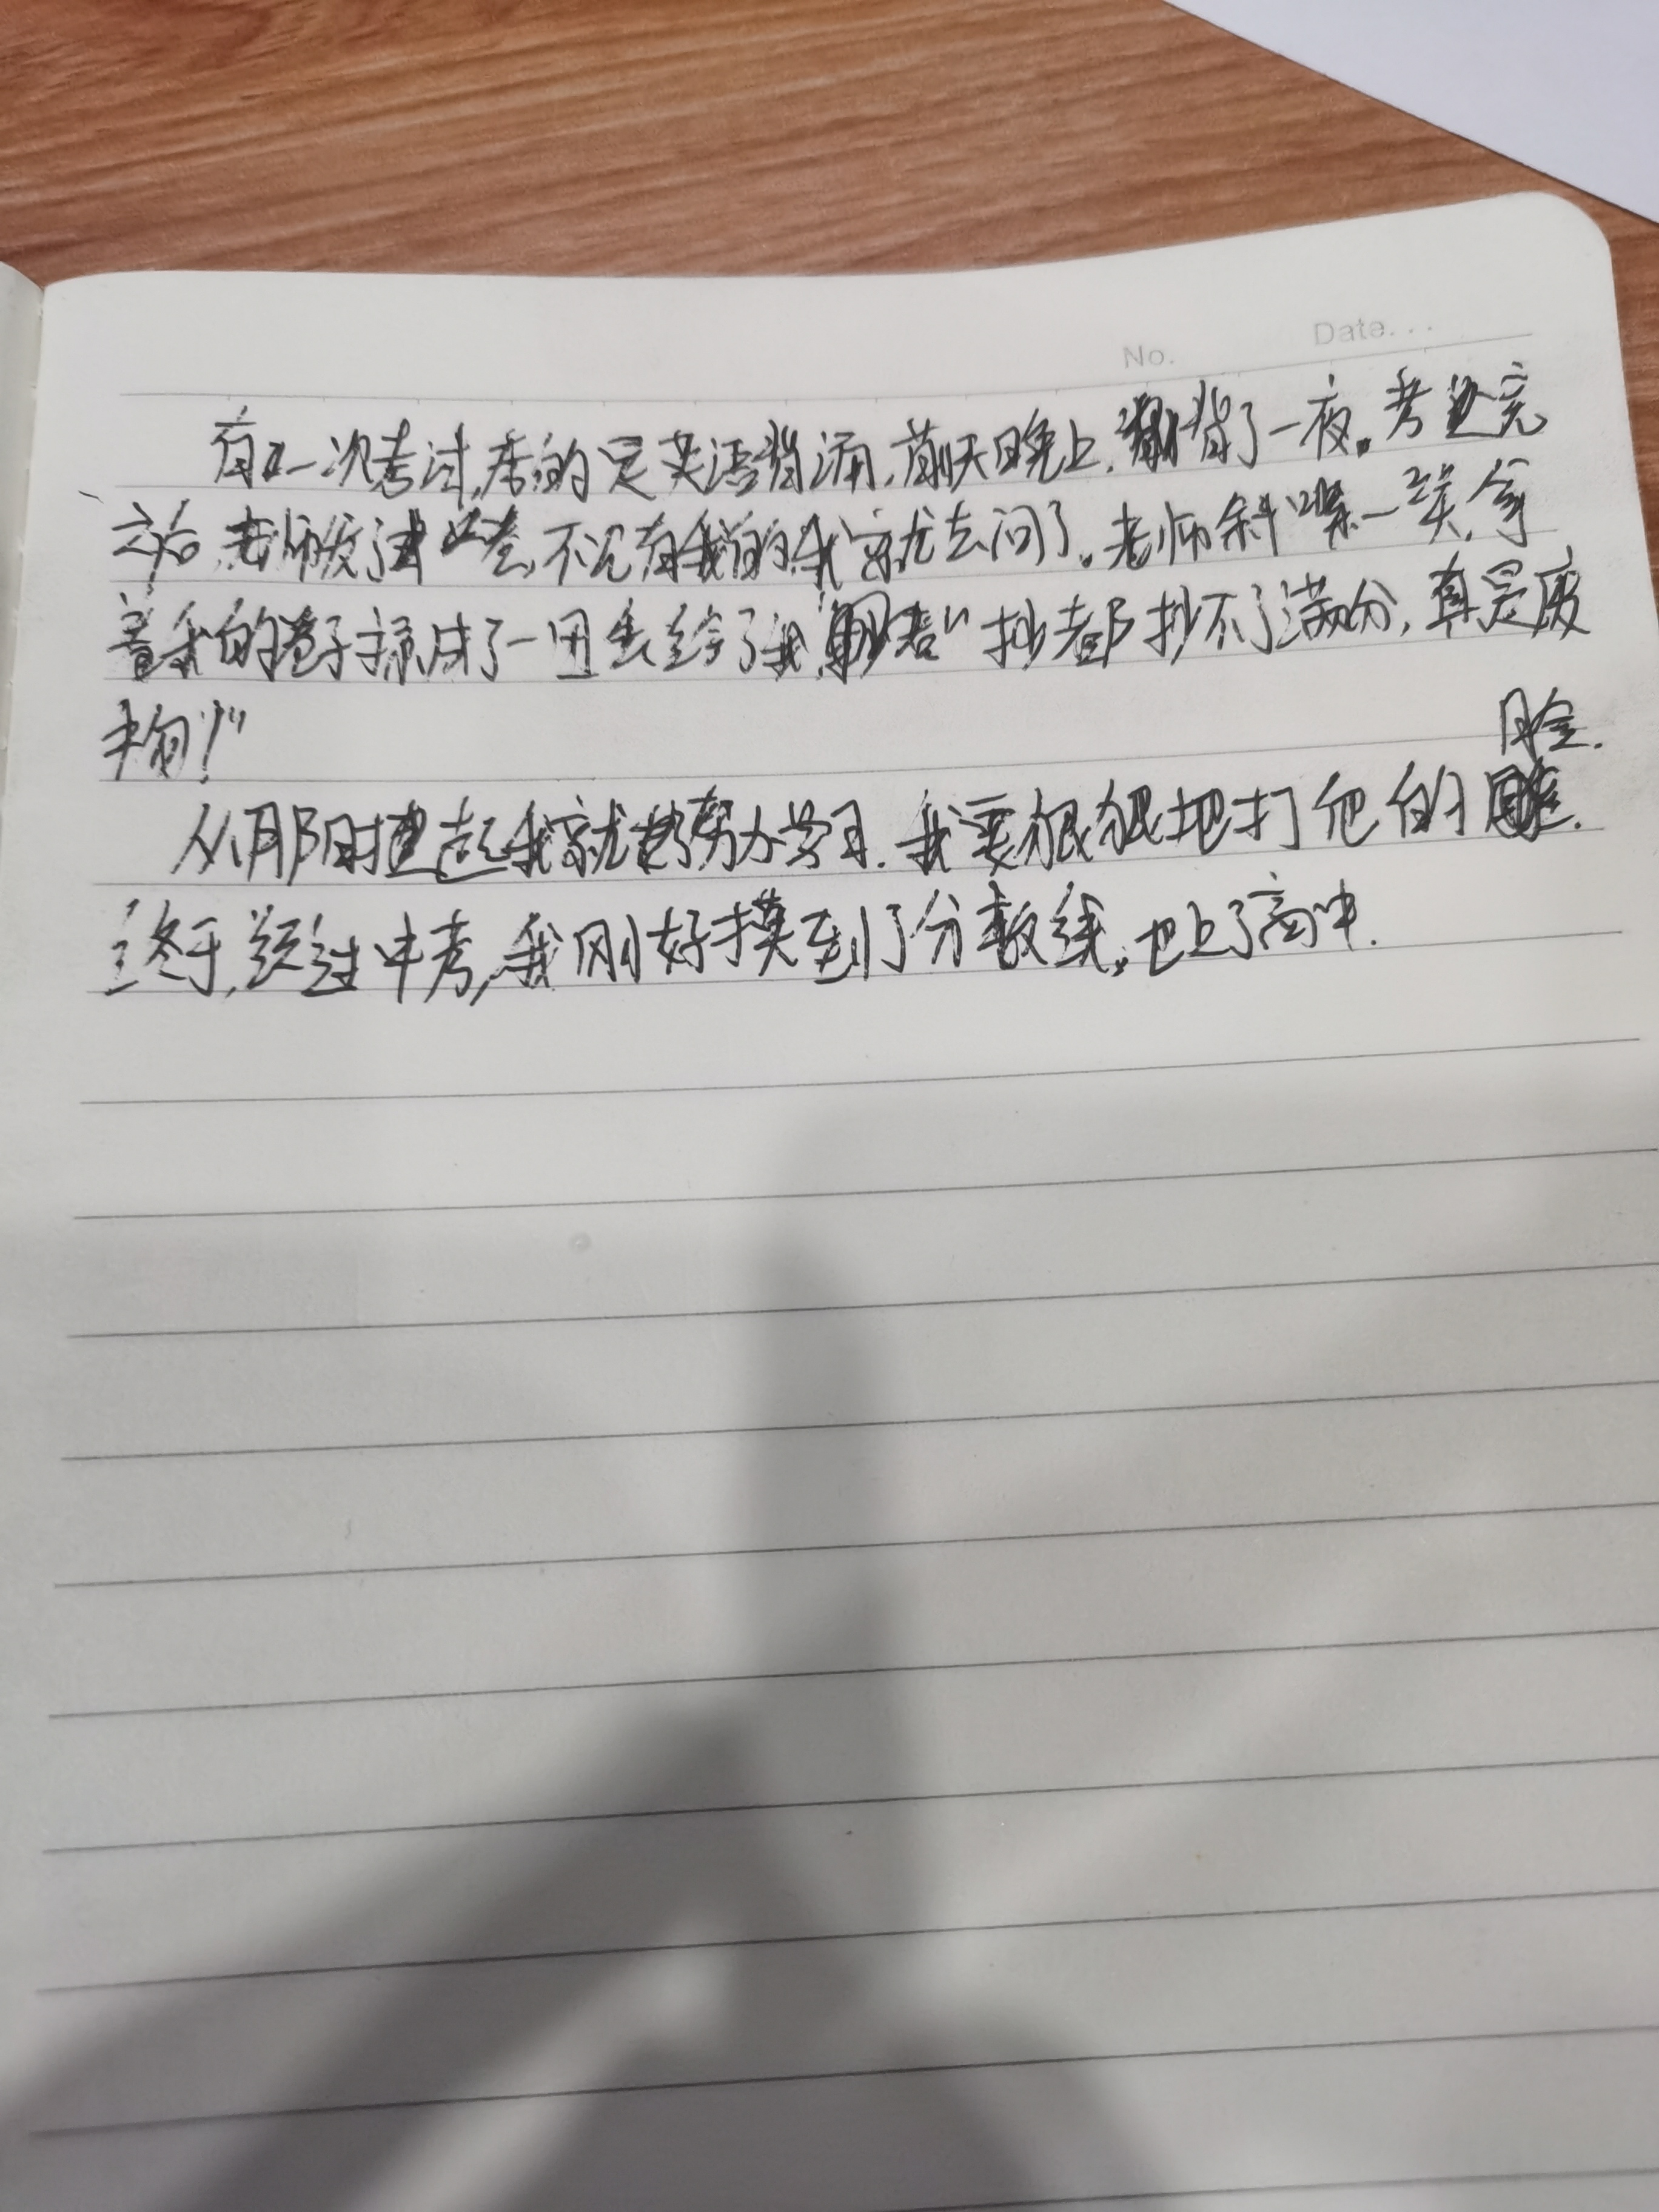 No. Date...
有一次考试,考的是英语背诵,前天晚上,背了一夜。考完
之后,老师发了卷,不见有我的,我就去问了。老师斜嘴一笑,拿
着我的卷子揉成了一团丢给了我,"抄都抄不了满分,真是废
物!"
脸.
从那时起我就努力学习.我要狠狠地打他的
终于,经过中考,我刚好摸到了分数线。也上了高中.